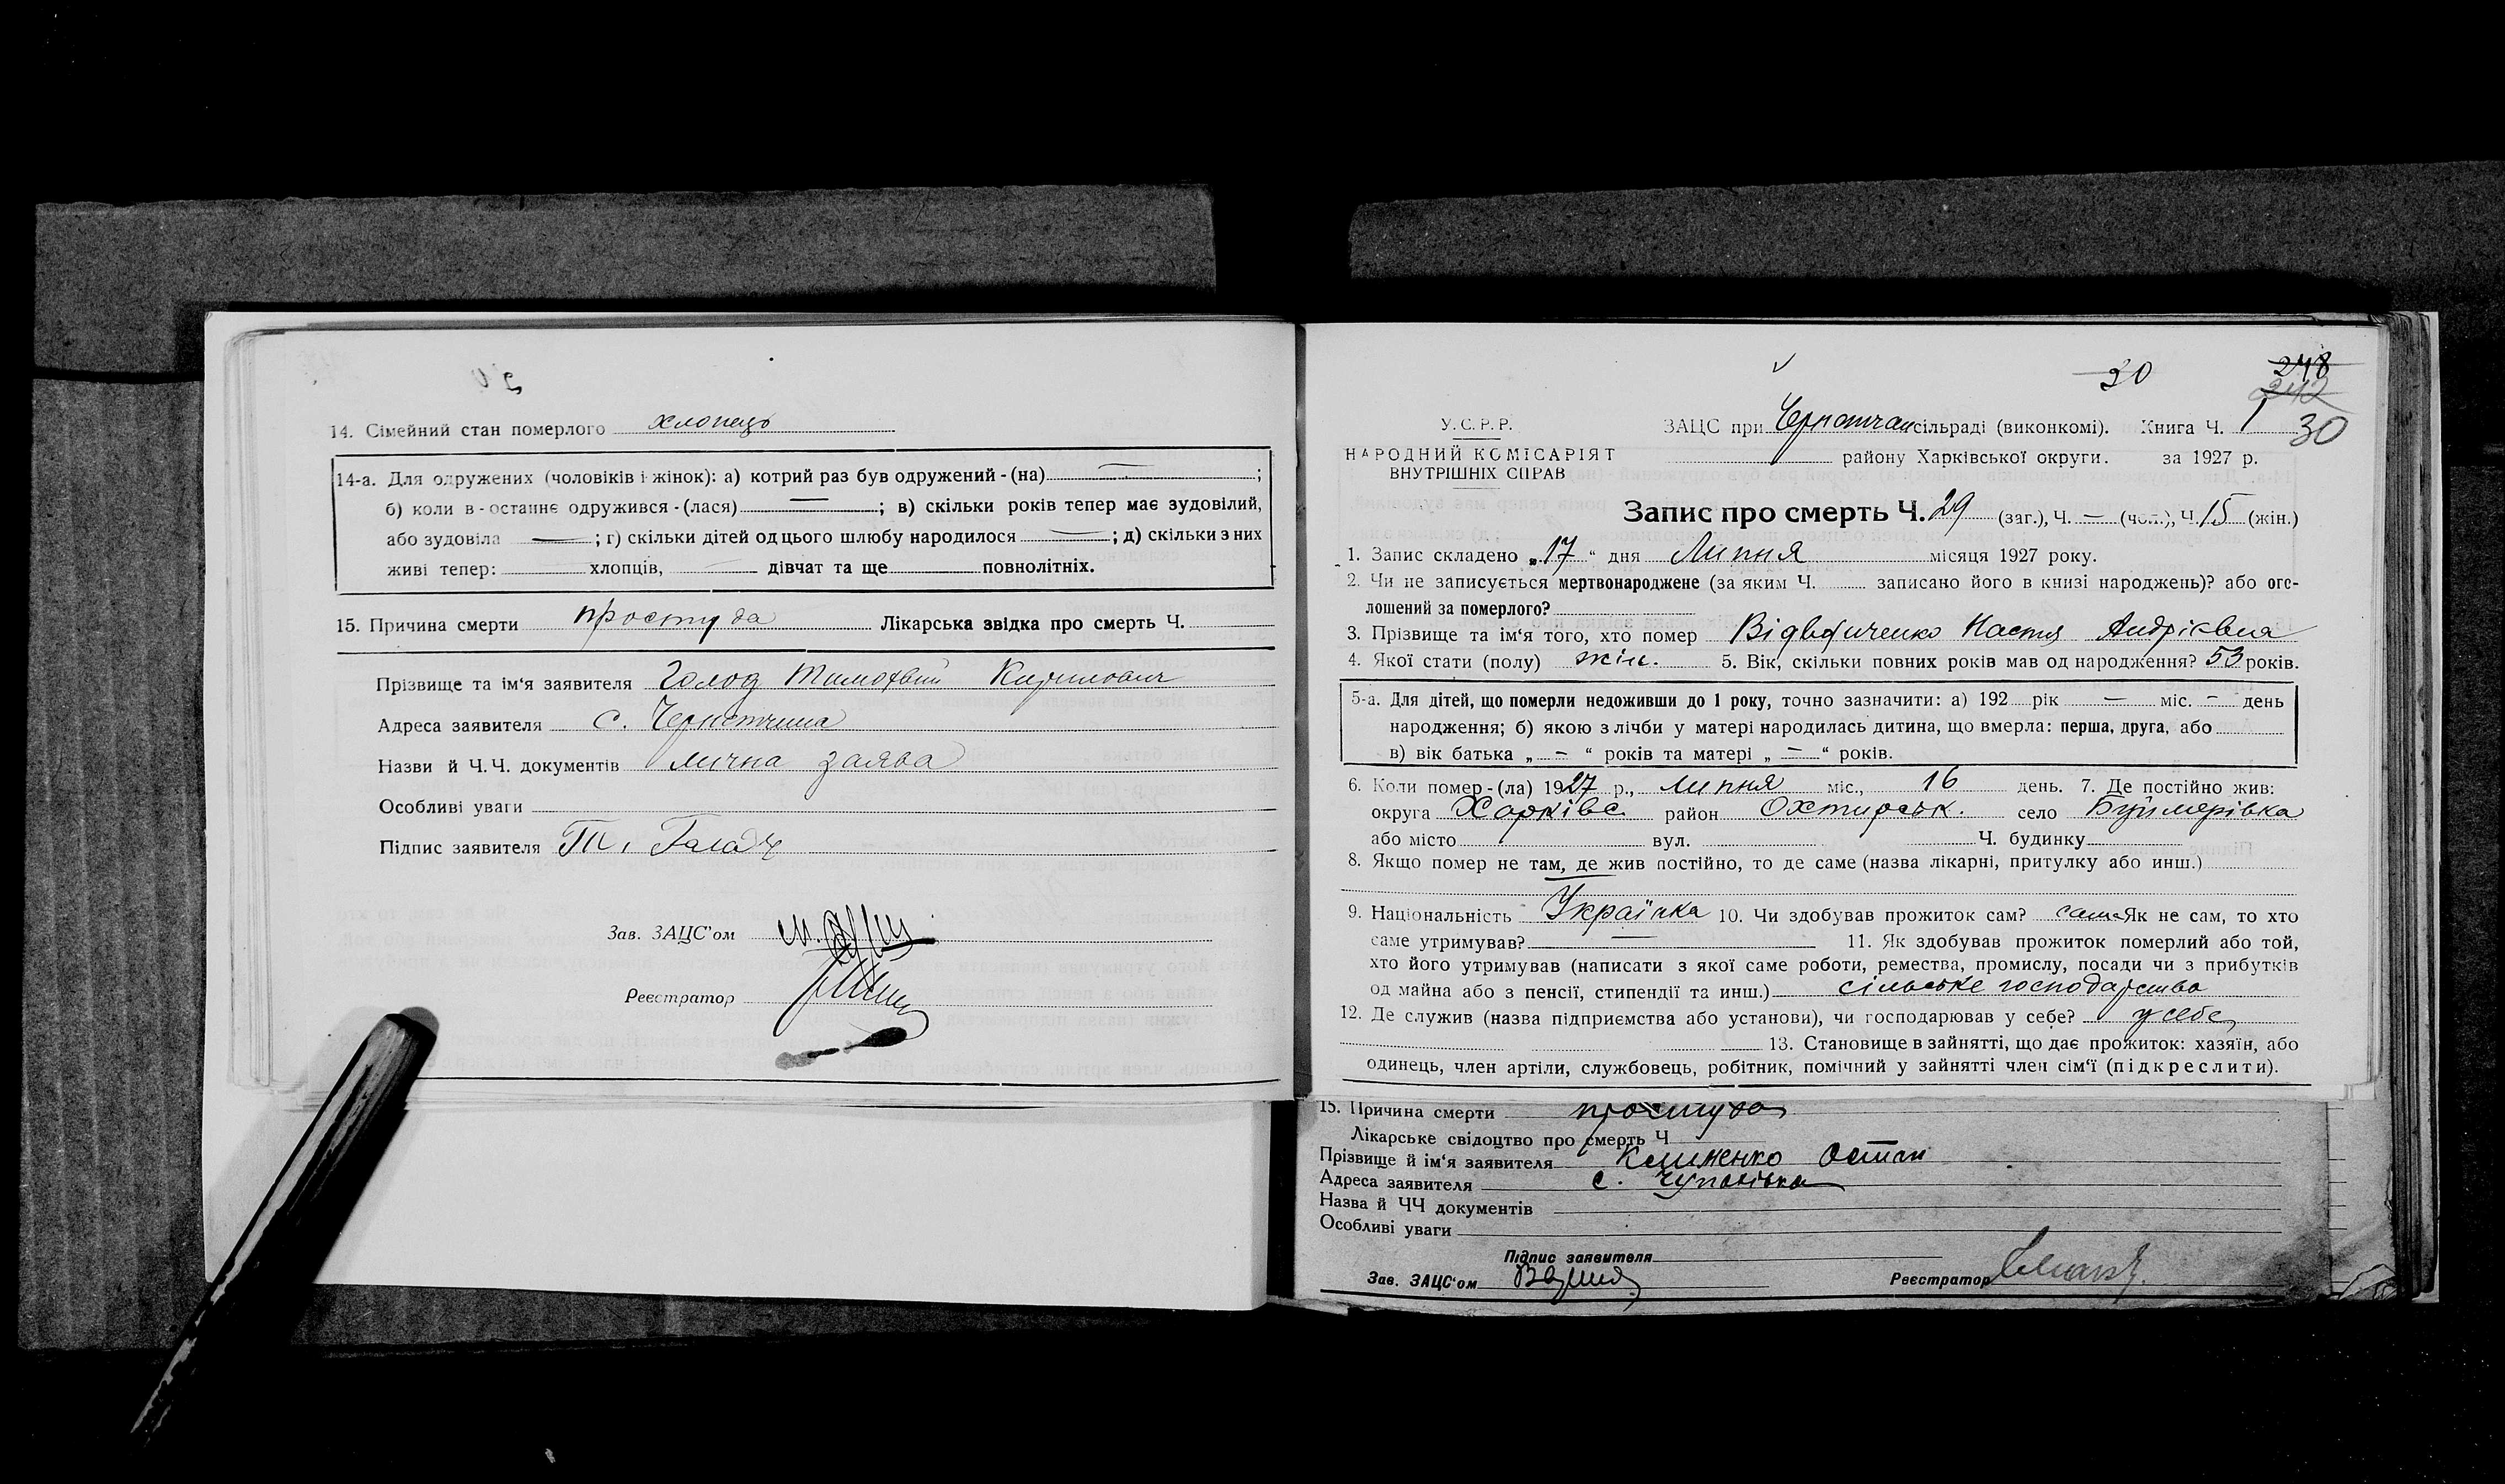 14. Сімейний стан померлого хлопець
14-а. Для одружених (чоловіків і жінок): а) котрий раз був одружений-(на) — ;
б) коли в-останнє одружився-(лася) — ; в) скільки років тепер має зудовілий,
або зудовіла — ; г) скільки дітей од цього шлюбу народилося — ; д) скільки з них
живі тепер: хлопців, дівчат та ще повнолітніх.
15. Причина смерти простуда Лікарська звідка про смерть Ч.
Прізвище та ім'я заявителя Голод Тимофвий Кирилович
Адреса заявителя с. Чернетчина
Назви й Ч.Ч. документів лична заява
Особливі уваги
Підпис заявителя Т.
Зав. ЗАЦС'ом
Реєстратор
30 248
242
У.С.Р.Р. ЗАЦС при Чернетчан сільраді (виконкомі). Книга Ч. 1 30
НАРОДНИЙ КОМІСАРІЯТ району Харківської округи. за 1927 р.
ВНУТРІШНІХ СПРАВ
Запис про смерть Ч. 29 (заг.), Ч. — (чол.), Ч. 15 (жін.)
1. Запис складено „17“ дня Липня місяця 1927 року.
2. Чи не записується мертвонароджене (за яким Ч. записано його в книзі народжень)? або ого-
лошений за померлого?
3. Прізвище та ім'я того, хто помер Настя Андрієвна
4. Якої стати (полу) жін. 5. Вік, скільки повних років мав од народження? 53 років.
5-а. Для дітей, що померли недоживши до 1 року, точно зазначити: а) 192 рік — міс. — день
народження; б) якою з лічби у матері народилась дитина, що вмерла: перша, друга, або
в) вік батька „ — “ років та матері „ — “ років.
6. Коли помер-(ла) 1927 р., липня міс., 16 день. 7. Де постійно жив:
округа Харківс. район Охтирськ. село Буймерівка
або місто вул. Ч. будинку
8. Якщо помер не там, де жив постійно, то де саме (назва лікарні, притулку або инш.)
—
9. Національність Українка 10. Чи здобував прожиток сам? сама Як не сам, то хто
саме утримував? — 11. Як здобував прожиток померлий або той,
хто його утримував (написати з якої саме роботи, ремества, промислу, посади чи з прибутків
од майна або з пенсії, стипендії та инш.) сільське господарство
12. Де служив (назва підприємства або установи), чи господарював у себе? у себе
13. Становище в зайнятті, що дає прожиток: хазяїн, або
одинець, член артіли, службовець, робітник, помічний у зайнятті член сім'ї (підкреслити).
15. Причина смерти простуда
Лікарське свідоцтво про смерть Ч
Прізвище й ім'я заявителя Клименко Остап
Адреса заявителя с. Чупахівка
Назва й ЧЧ документів
Особливі уваги
Підпис заявителя
Зав. ЗАЦС'ом Реєстратор